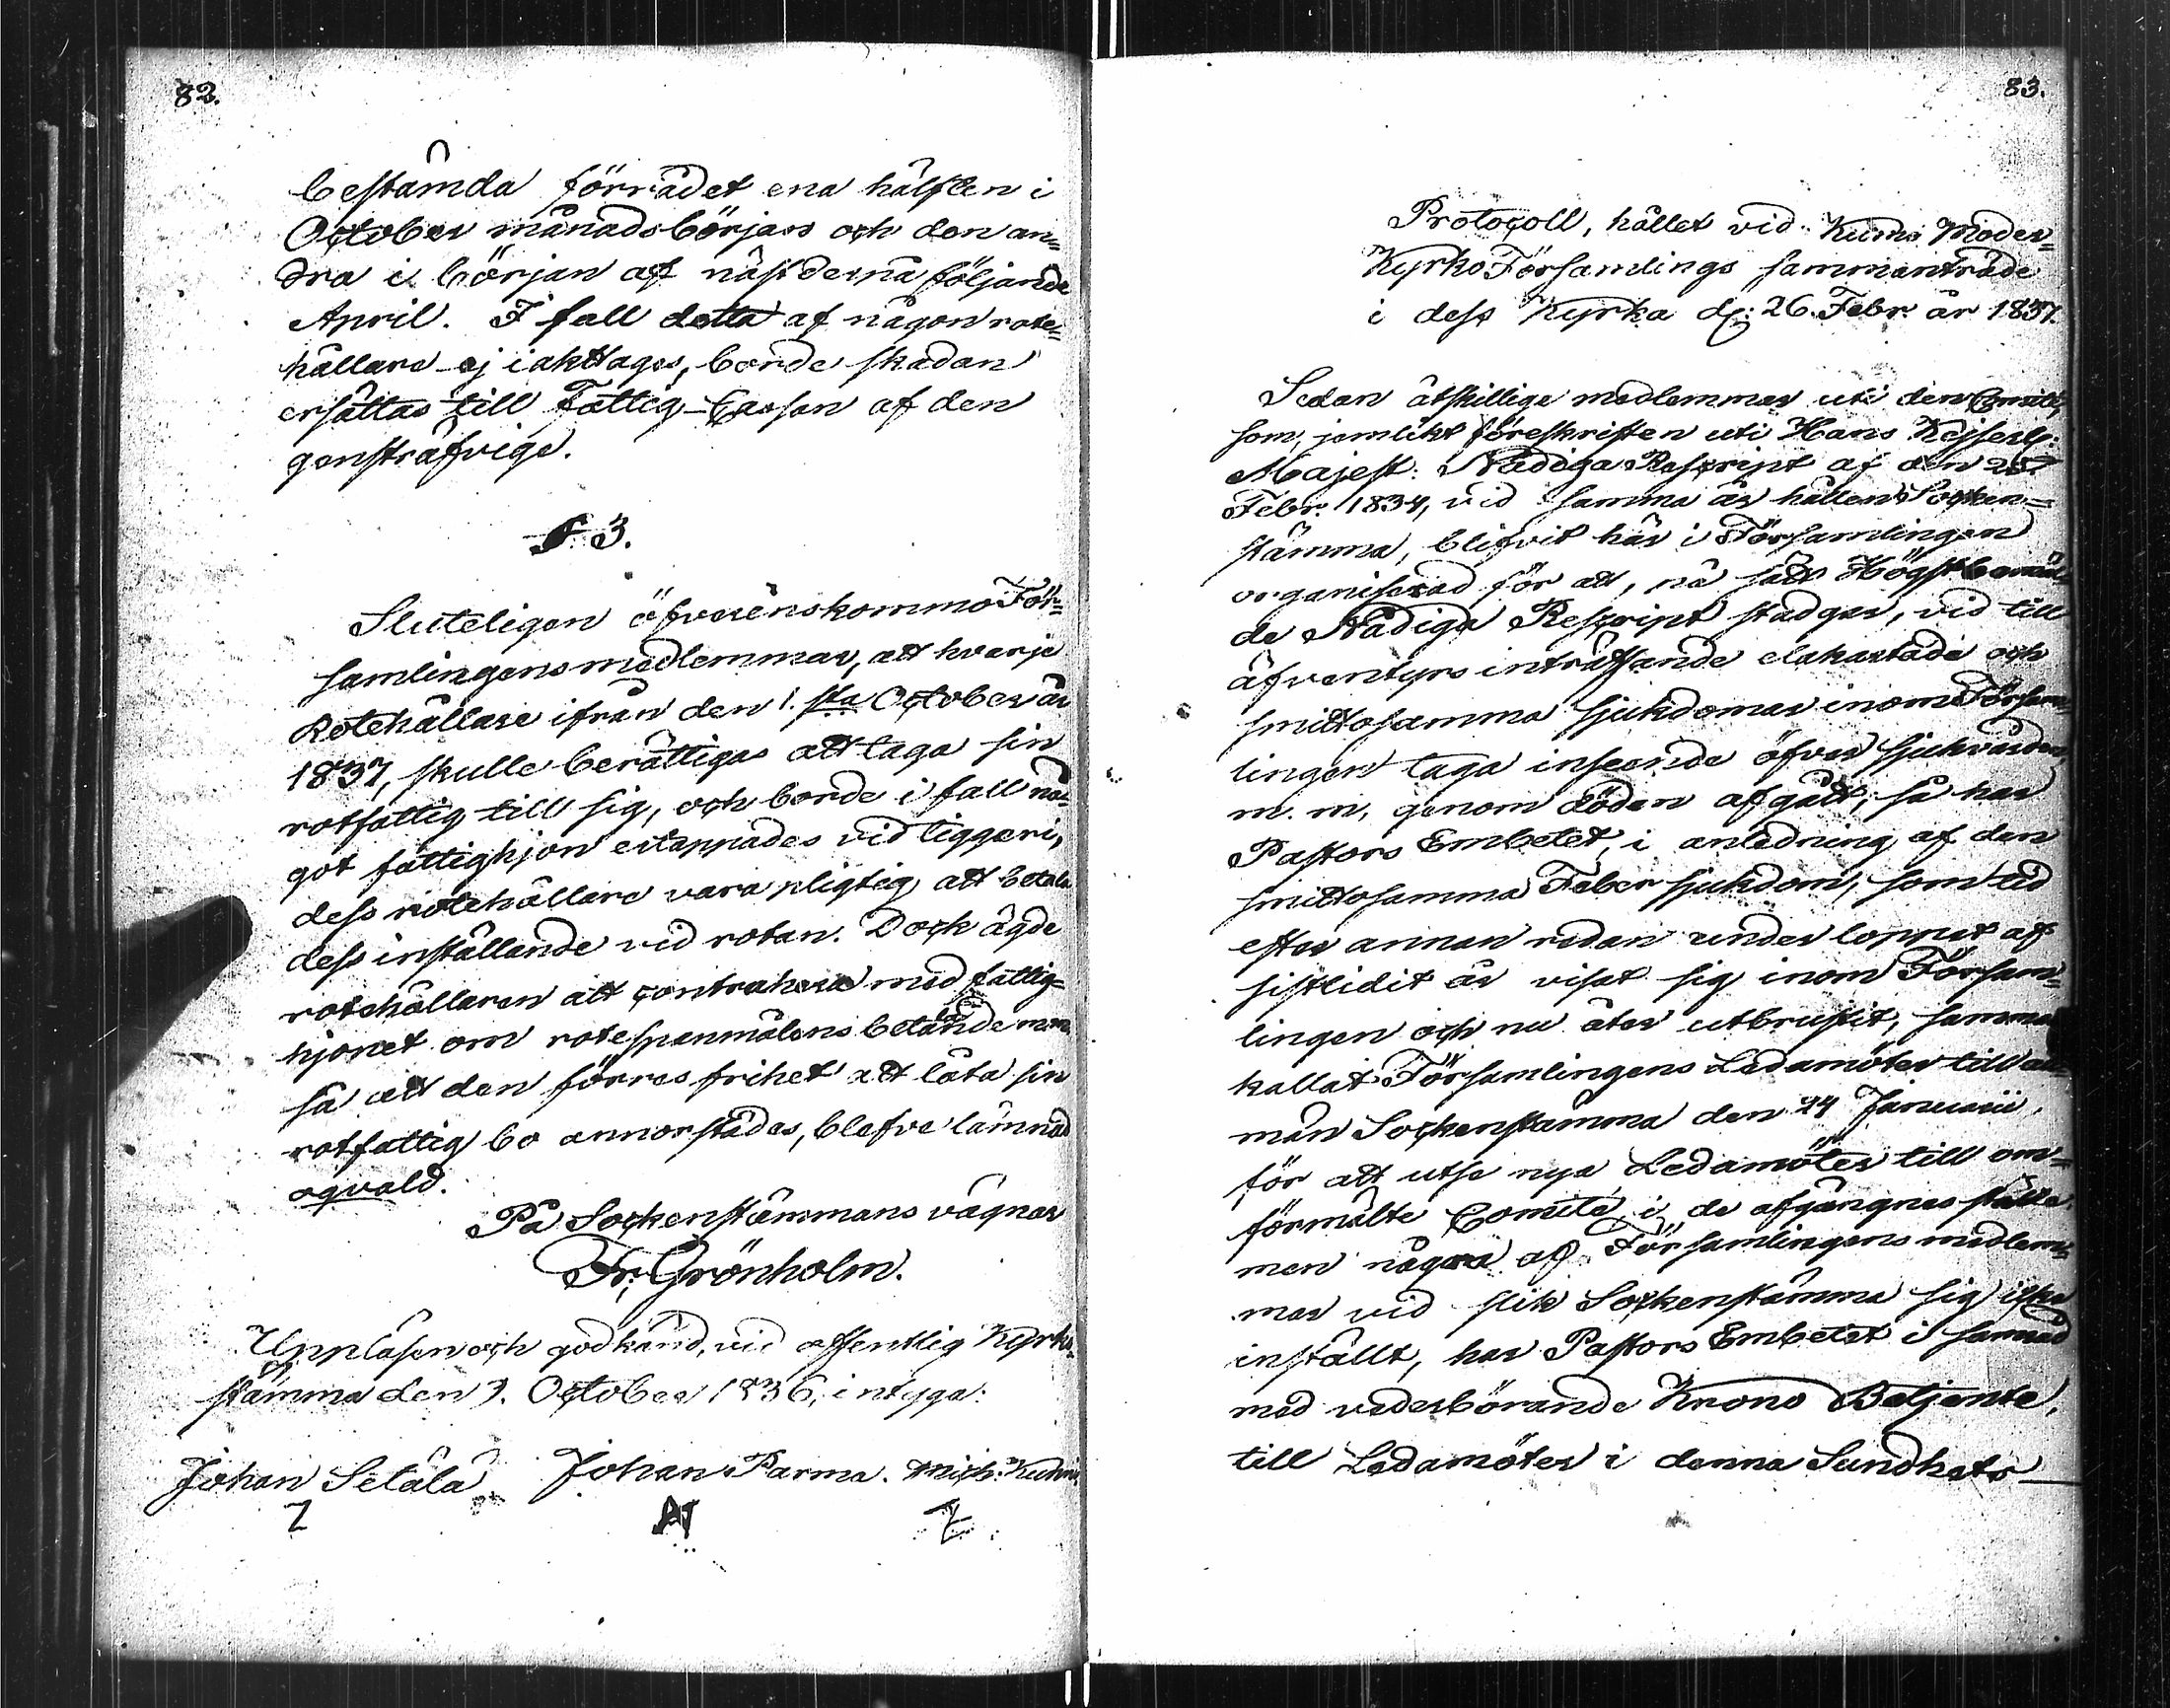 82.
bestämda förrådet ena hälften i
October månads början och den an=
dra i början af näst derpå följande
April. I fall detta af någon rote=
hållare ej iakttages, borde skadan
ersättas till Fattig-Cassan af den
gensträfvige.
§ 3.
Sluteligen öfverenskommo För=
samlingens medlemmar, att hvarje
Rotehållare ifrån den 1.sta October år
1837, skulle berättigas att taga sin
rotfattig till sig, och borde i fall nå=
got fattighjon ertappades vid tiggeri,
dess rotehållare vara pligtig att betala
dess inställande vid rotan. Dock ägde
rotehållaren att contrahera med fattig=
hjonet om rotespanmålens betände
så att den förres frihet att låta sin
rotfattig bo annorstädes, blefve lämnad
oqvald.
På Sockenstämmans vägnar
Fr. Grönholm.
Uppläsen och godkänd, vid offentlig Kyrko=
stämma den 9. October 1836, intyga:
Johan Setälä Johan Parma. Mich:
83.
Protocoll, hållet vid Kumo Moder=
Kyrko Församlings sammanträde
i dess Kyrka d: 26. Febr. år 1837.
Sedan åtskillige medlemmar uti den Comité,
som, jemlikt föreskriften uti Hans Kejserl:
Majest: Nådiga Rescript af den
Febr. 1834, vid samma år hållen Socken=
stämma, blifvit här i Församlingen
organiserad för att, på sätt Högstberör=
de Nådiga Rescript stadgar, vid till
äfventyrs inträffande elakartade och
smittosamma sjukdomar inom Försam=
lingen taga inseende öfver sjukvården
m. m, genom döden afgått, så har
Pastors Embetet, i anledning af den
smittosamma Feber sjukdom, som tid
efter annan redan under loppet af
sistlidit år visat sig inom Försam=
lingen och nu åter utbrustit, samman
kallat Församlingens Ledamöter till all=
män Sockenstämma den 24 Januarii,
för att utse nya Ledamöter till om=
förmälte Comité i de afgångnes ställe;
men några af Församlingens medlem=
mar vid slik Sockenstämma sig icke
inställt, har Pastors Embetet i samråd
med vederbörande Krono Betjente,
till Ledamöter i denna Sundhets